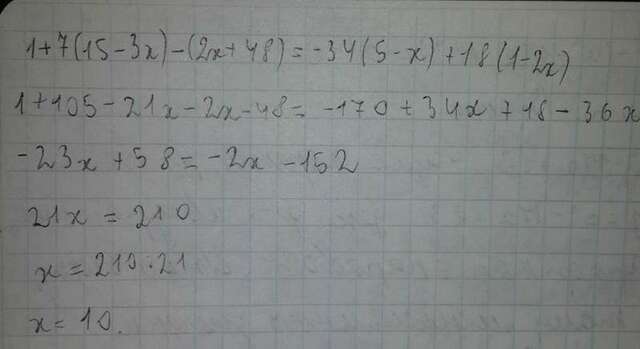 1+7(15-3x)-(2x+48)=-34(5-x)+18(1-2x)
1+105-21x-2x-48=-170+34x+18-36x
-23x+58=-2x-152
21x=210
x=210:21
x=10.